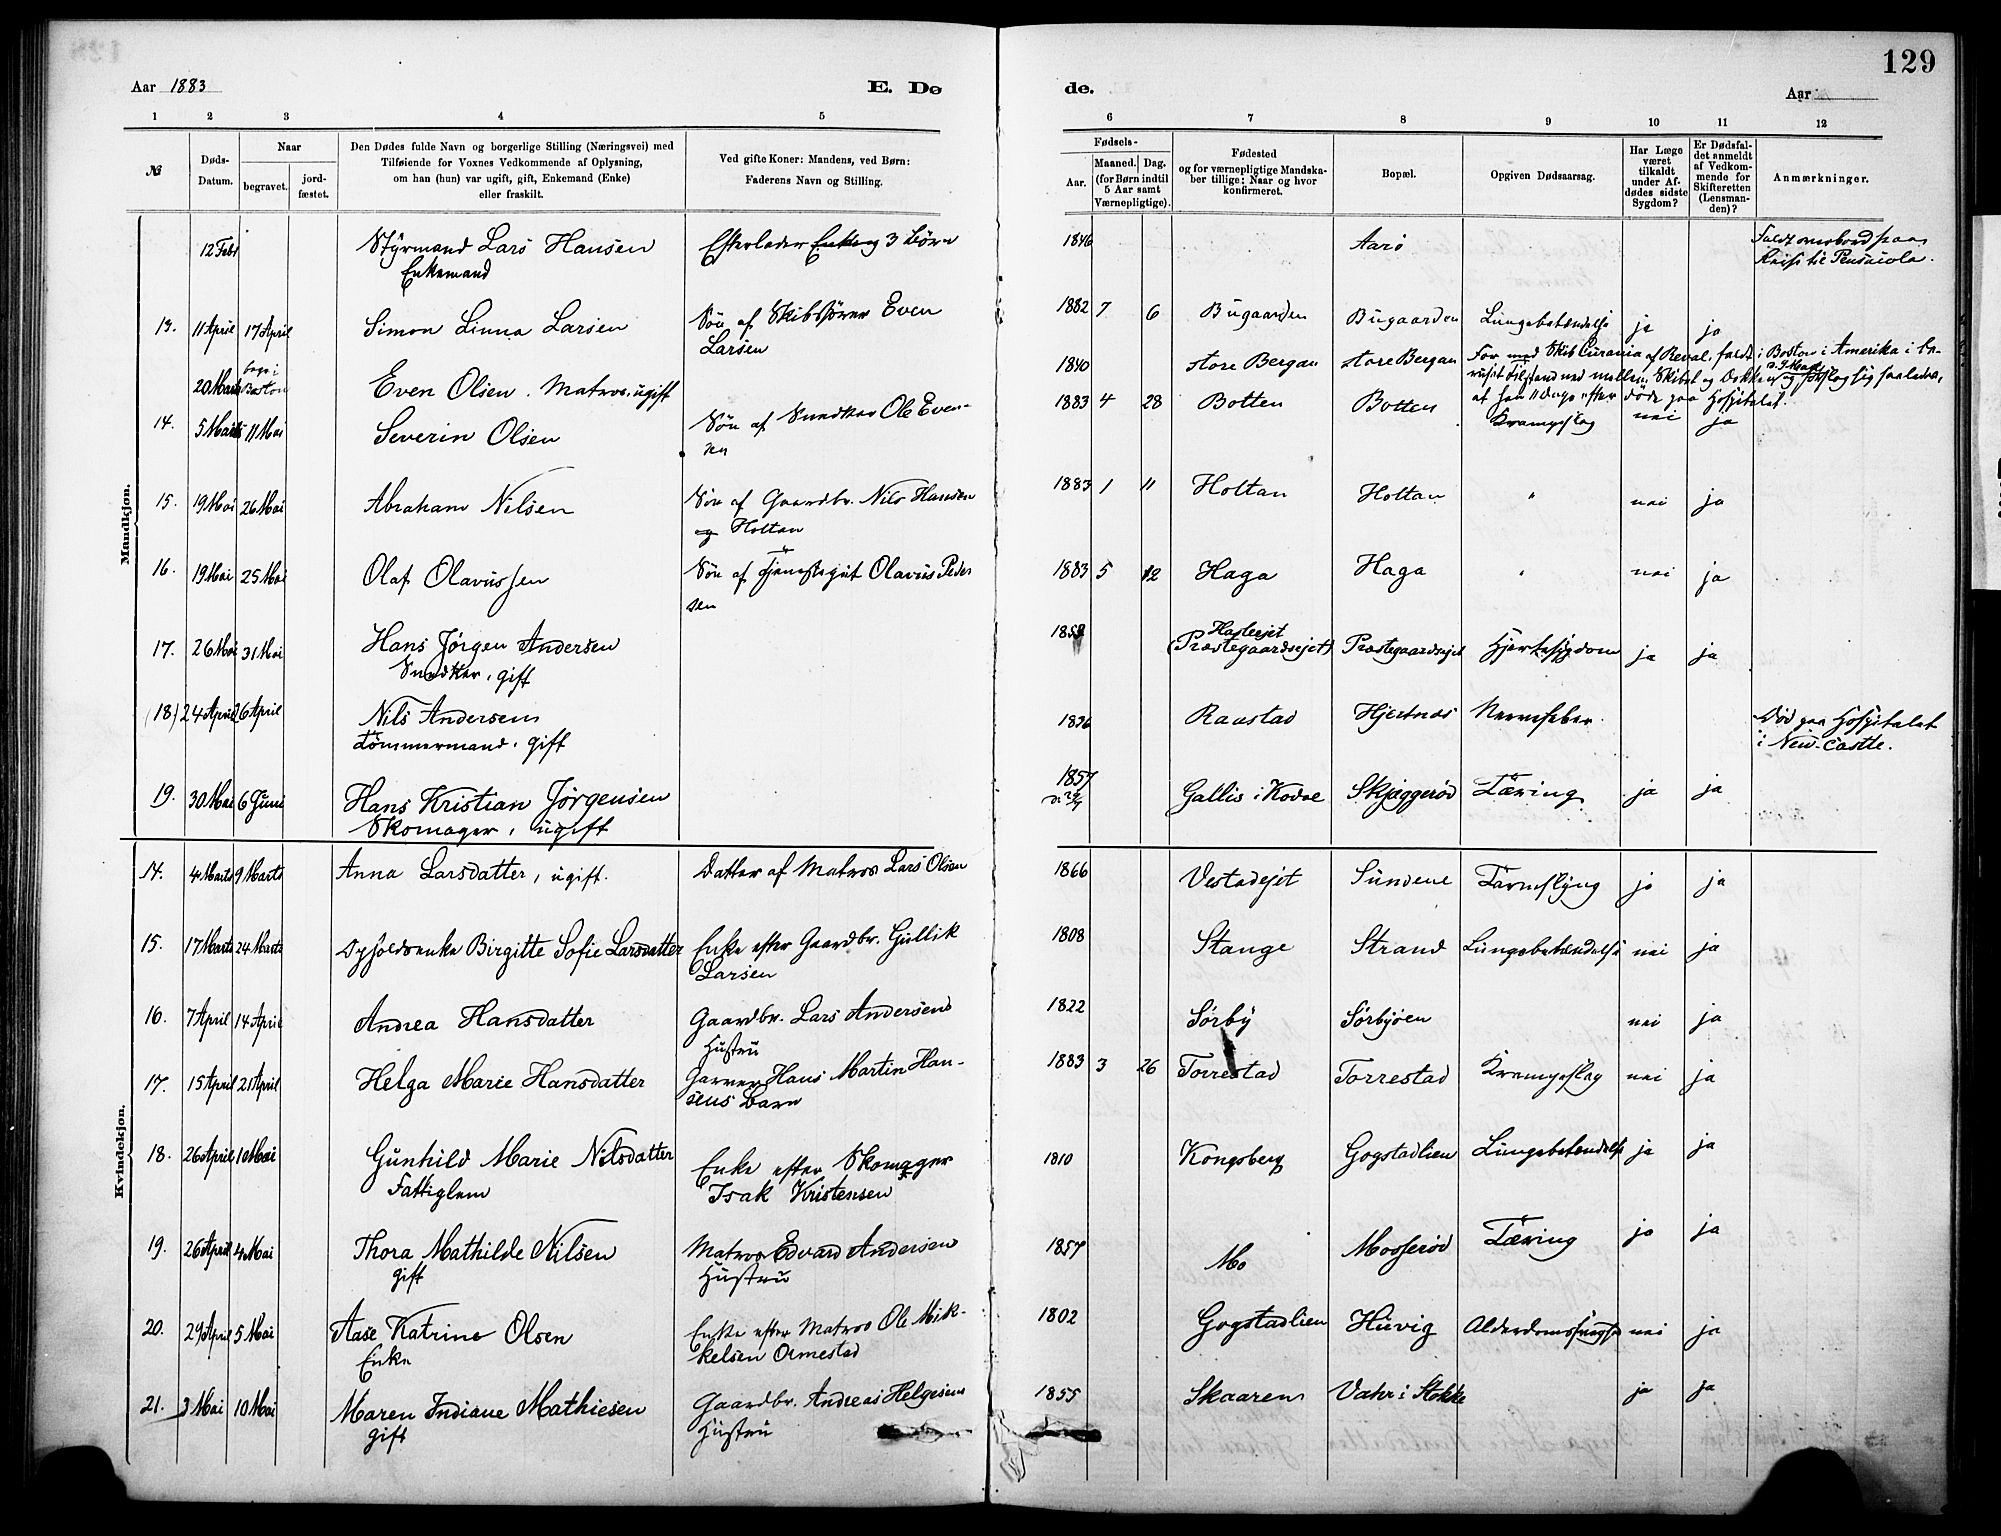 129
Aar 1883
E. Dø
de.
Aar
1 2 3 4 5 6 7 8 9 10 11 12
№
Døds-
Datum.
Naar
begravet.
jord-
fæstet.
Den Dødes fulde Navn og borgerlige Stilling (Næringsvei) med
Tilføiende for Voxnes Vedkommende af Oplysning,
om han (hun) var ugift, gift, Enkemand (Enke)
eller fraskilt.
Ved gifte Koner: Mandens, ved Børn:
Faderens Navn og Stilling.
Fødsels-
Aar.
Maaned. Dag.
(for Børn indtil
5 Aar samt
Værnepligtige).
Fødested
og for værnepligtige Mandska-
ber tillige: Naar og hvor
konfirmeret.
Bopæl.
Opgiven Dødsaarsag.
Har Læge
været
tilkaldt
under Af-
dødes sidste
Sygdom?
Er Dødsfal-
det anmeldt
af Vedkom-
mende for
Skifteretten
(Lensman-
den)?
Anmærkninger.
Mandkjøn.
12 Febr Styrmand Lars Hansen Efterlader Enke og 3 Børn 1846 Aarø Faldt overbord paa
Enkemand Reise til Pensacola.
13. 11 April 17 April Simon Linna Larsen Søn af Skibsfører Even 1882 7 6 Bugaarden Bugaarden Lungebetændelse ja ja
Larsen
20 Marts begr. i Boston Even Olsen. Matros, ugift 1840 store Bergan store Bergan For med Skib Curania af Reval, faldt i Boston i Amerika i be-
ruset Tilstand ned mellem Skibet og Dokken og slog sig saaledes,
at han 11 Dage efter døde paa Hospitalet.
14. 5 Mai 11 Mai Severin Olsen Søn af Snedker Ole Even- 1883 4 28 Botten Botten Krampeslag nei ja
sen
15. 19 Mai 26 Mai Abraham Nilsen Søn af Gaardbr. Nils Hansen 1883 1 11 Holtan Holtan " nei ja
Holtan
16. 19 Mai 25 Mai Olaf Olavussen Søn af Tjenestegut Olavus Peder 1883 5 12 Haga Haga " nei ja
sen
17. 26 Mai 31 Mai Hans Jørgen Andersen (Præstegaardsejet) Præstegaardsejet Hjertesygdom ja ja
Snedker, gift
(18) 24 April 26 April Nils Andersen 1836 Raastad Hjertnes Nervefeber. Død paa Hospitalet
Tömmermand. gift i New-Castle.
19. 30 Mai 6 Juni Hans Kristian Jørgensen 1857 Gallis i Kodal Skjæggerød Tæring ja ja
Skomager, ugift
Kvindekjøn.
14. 4 Marts 9 Marts Anna Larsdatter, ugift. Datter af Matros Lars Olsen 1866 Vestadejet Sundene Tarmslyng ja ja
15. 17 Marts 24 Marts Opholdsenke Birgitte Sofie Larsdatter Enke efter Gaardbr. Gullik 1808 Stange Strand Lungebetændelse nei ja
Larsen
16. 7 April 14 April Andrea Hansdatter Gaardbr. Lars Andersens 1822 Sørby Sörbyöen nei ja
Hustru
17. 15 April 21 April Helga Marie Hansdatter Garver Hans Martin Han- 1883 3 26 Torrestad Torrestad Krampeslag nei ja
sens Barn
18. 26 April 10 Mai Gunhild Marie Nilsdatter Enke efter Skomager 1810 Kongsberg Gogstadlien Lungebetændelse ja ja
Fattiglem Isak Kristensen
19. 26 April 4 Mai Thora Mathilde Nilsen Matros Edvard Andersens 1857 Mo Mosserød Tæring ja ja
gift Hustru
20. 29 April 5 Mai Aase Katrine Olsen Enke efter Matros Ole Mik- 1802 Gogstadlien Huvig Alderdomssvaghed nei ja
Enke kelsen Ormestad
21. 3 Mai 10 Mai Maren Indiane Mathiesen Gaardbr. Andreas Helgesens 1855 Skaaren Vahr i Stokke ja ja
gift Hustru